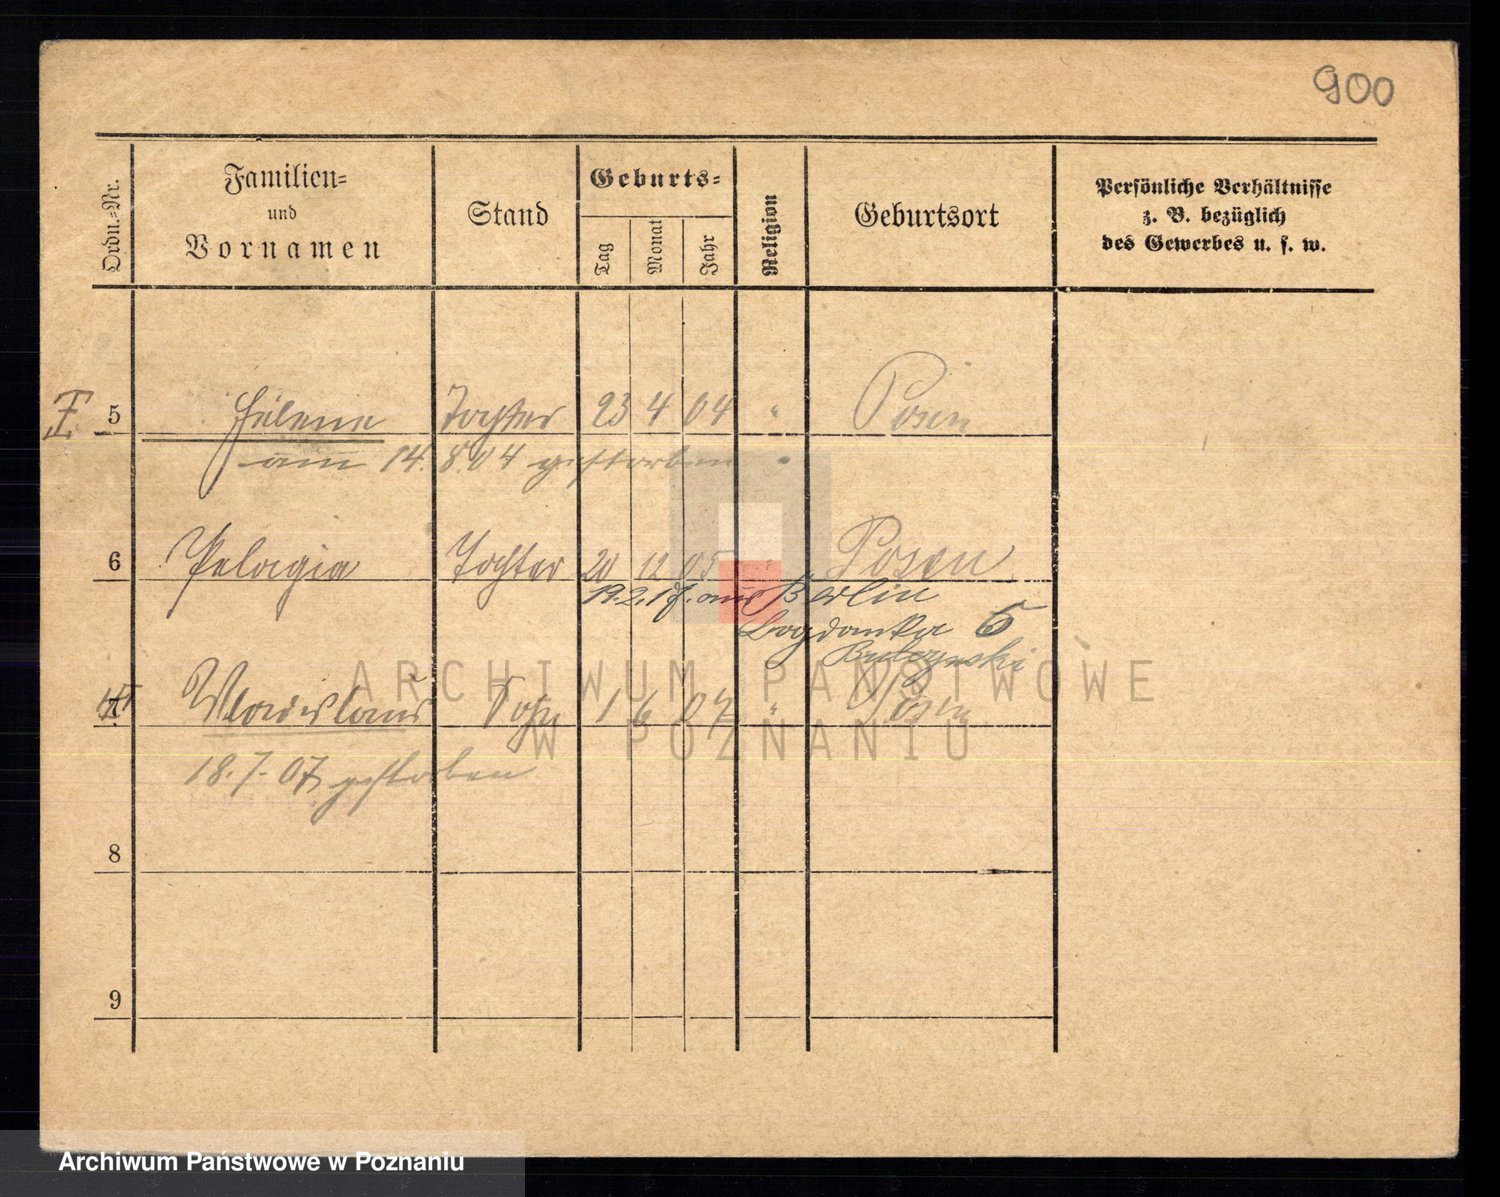 900
Ordn.=Nr.
Familien=
und
Vornamen
Stand
Geburts=
Tag
Monat
Jahr
Religion
Geburtsort
Persönliche Verhältnisse
z. B. bezüglich
des Gewerbes u. s. w.
5 Helene Tochter 23 4 04 " Posen
am 14. 8. 04 gestorben
6 Pelagia Tochter 20 12 05 " Posen
19. 2. 17. aus Berlin
Bogdanka 6
Wladislaus Sohn 1 6 07 " Posen
18. 7. 07 gestorben
8
9
ARCHIWUM PAŃSTWOWE
W POZNANIU
Archiwum Państwowe w Poznaniu